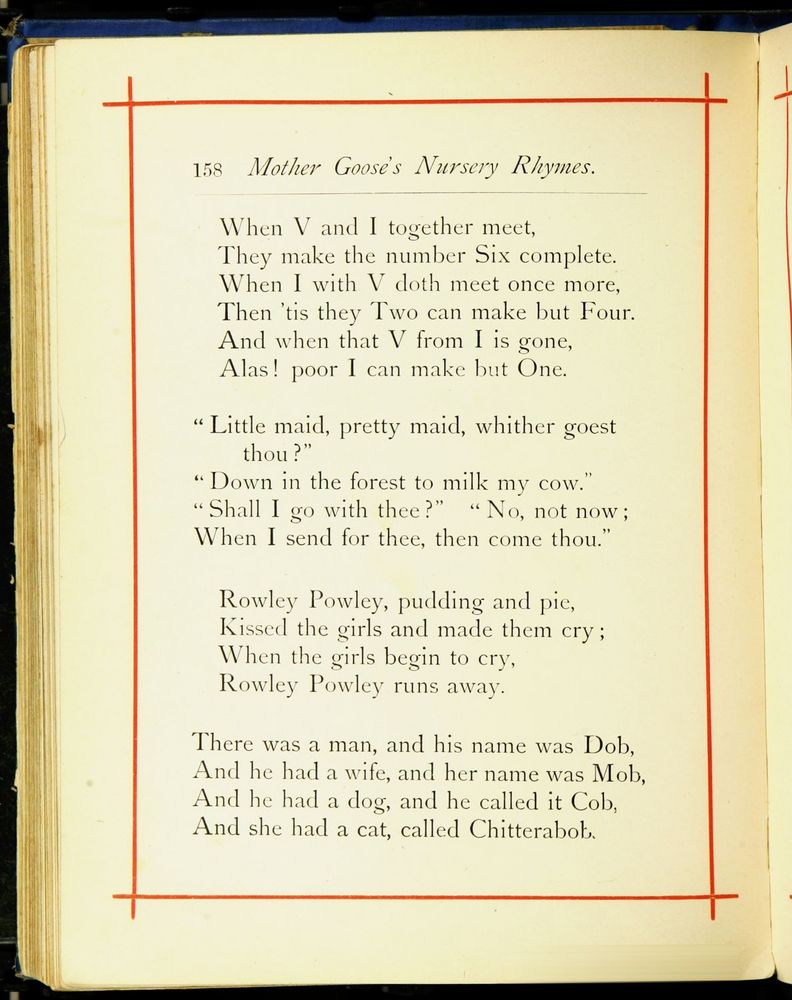 158 Mother Goose's Nursery Rhymes.
When V and I together meet,
They make the number Six complete.
When I with V doth meet once more,
Then 'tis they Two can make but Four.
And when that V from I is gone,
Alas! poor I can make but One.
“ Little maid, pretty maid, whither goest
thou?”
“ Down in the forest to milk my cow.”
“ Shall I go with thee?” “ No, not now;
When I send for thee, then come thou.”
Rowley Powley, pudding and pie,
Kissed the girls and made them cry;
When the girls begin to cry,
Rowley Powley runs away.
There was a man, and his name was Dob,
And he had a wife, and her name was Mob,
And he had a dog, and he called it Cob,
And she had a cat, called Chitterabob.